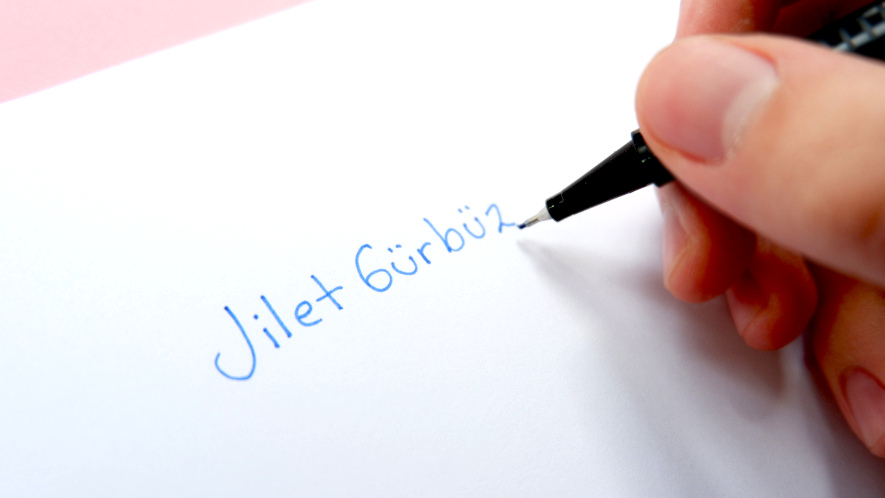 Jilet Gürbüz